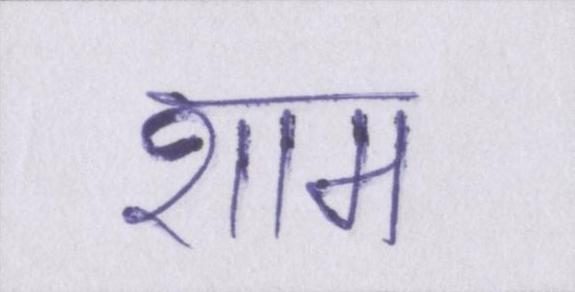 शाम